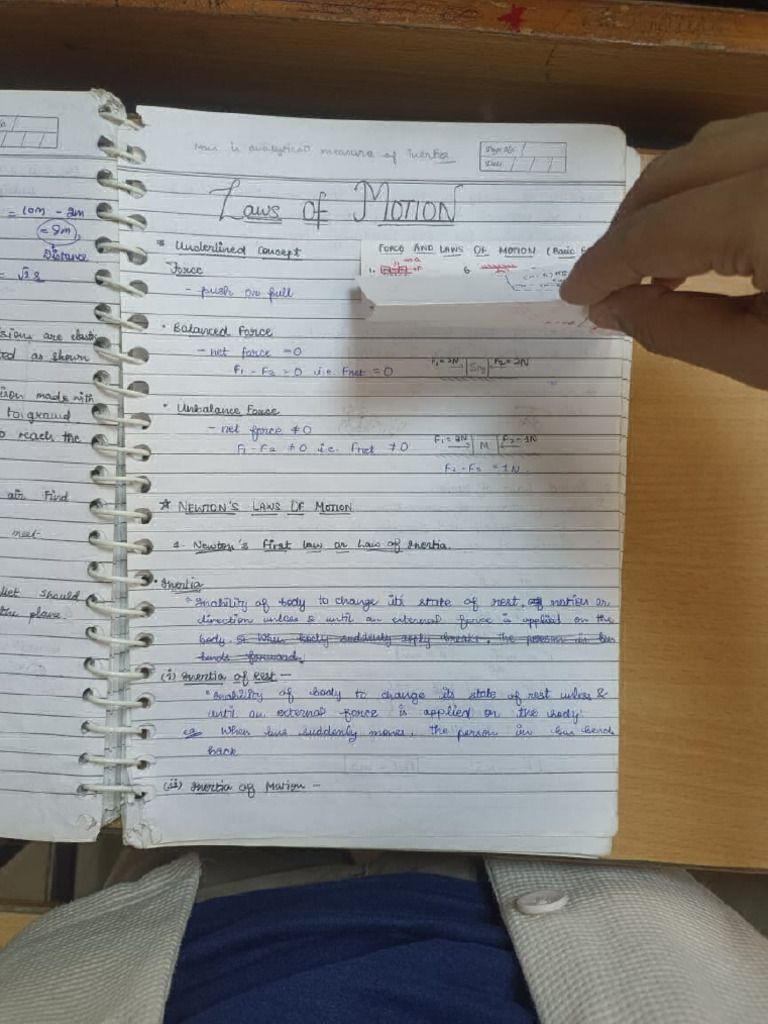 = 10m - 2m
= 8m
Distance
= √2 s
sions are elastic
ted as shown
ion made with
to ground
o reach the
air Find
meet
let should
the plane.
Mass is analytical measure of Inertia
Page No.
Date
LAWS OF MOTION
Underlined Concept
Force
- push or pull
FORCE AND LAWS OF MOTION (Basic
1.
6.
• Balanced Force
- net force = 0
F1 - F2 = 0 i.e. Fnet = 0
F1 = 2N F2 = 2N
• Unbalance Force
- net force ≠ 0
F1 - F2 ≠ 0 i.e. Fnet ≠ 0
F1 = 2N M F2 = 1N
F1 - F2 = 1N
☆ NEWTON'S LAWS OF MOTION
1. Newton's First law or Law of Inertia.
• Inertia
Inability of body to change its state of rest, motion or
direction unless & until an external force is applied on the
body. When body suddenly apply breaks, the person in bus
bends forward.
(i) Inertia of Rest -
Inability of body to change its state of rest unless &
until an external force is applied on the body.
eg When bus suddenly moves, the person in bus bends
back
(ii) Inertia of Motion -